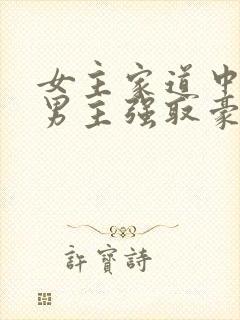 女主家道中
男主强取豪
許寶詩